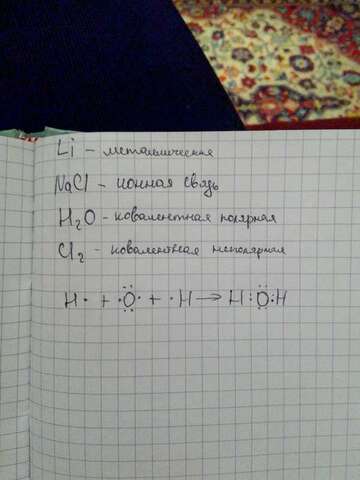 Li – металлическая
NaCl – ионная связь
H₂O – ковалентная полярная
Cl₂ – ковалентная неполярная
H· + ·Ö· + ·H → H:Ö:H